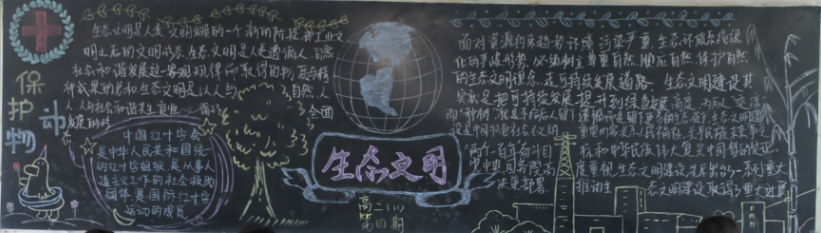 生态文明是人类文明发展的一个新的阶段,即工业文
明之后的文明形态,生态文明是人类遵循人、自然
社会和谐发展这一客观规律而取得的物质与精
神成果的总和,生态文明是以人与自然、人
人与社会和谐共生
全面
发展
保护动物
中国红十字会
是中华人民共和国统一
的红十字组织,是从事人
道主义工作的社会救助
团体,是国际红十字
运动的成员
生态文明
高二(八)
第四期
面对资源约束趋势、环境污染严重、生态环境系统退
化的严峻形势,必须树立尊重自然、顺应自然、保护自然
的生态文明理念,走可持续发展道路。生态文明建设其
实就是把可持续发展提升到绿色发展高度,为后人“乘凉”
而“种树”,就是不给后人留下遗憾而是留下更多的生态
“两个一百年”奋斗目
党中央、国务院高
决策部署
度重视生态文明建设,先后出台了一系列重大
推动生态文明建设取得了重大进展